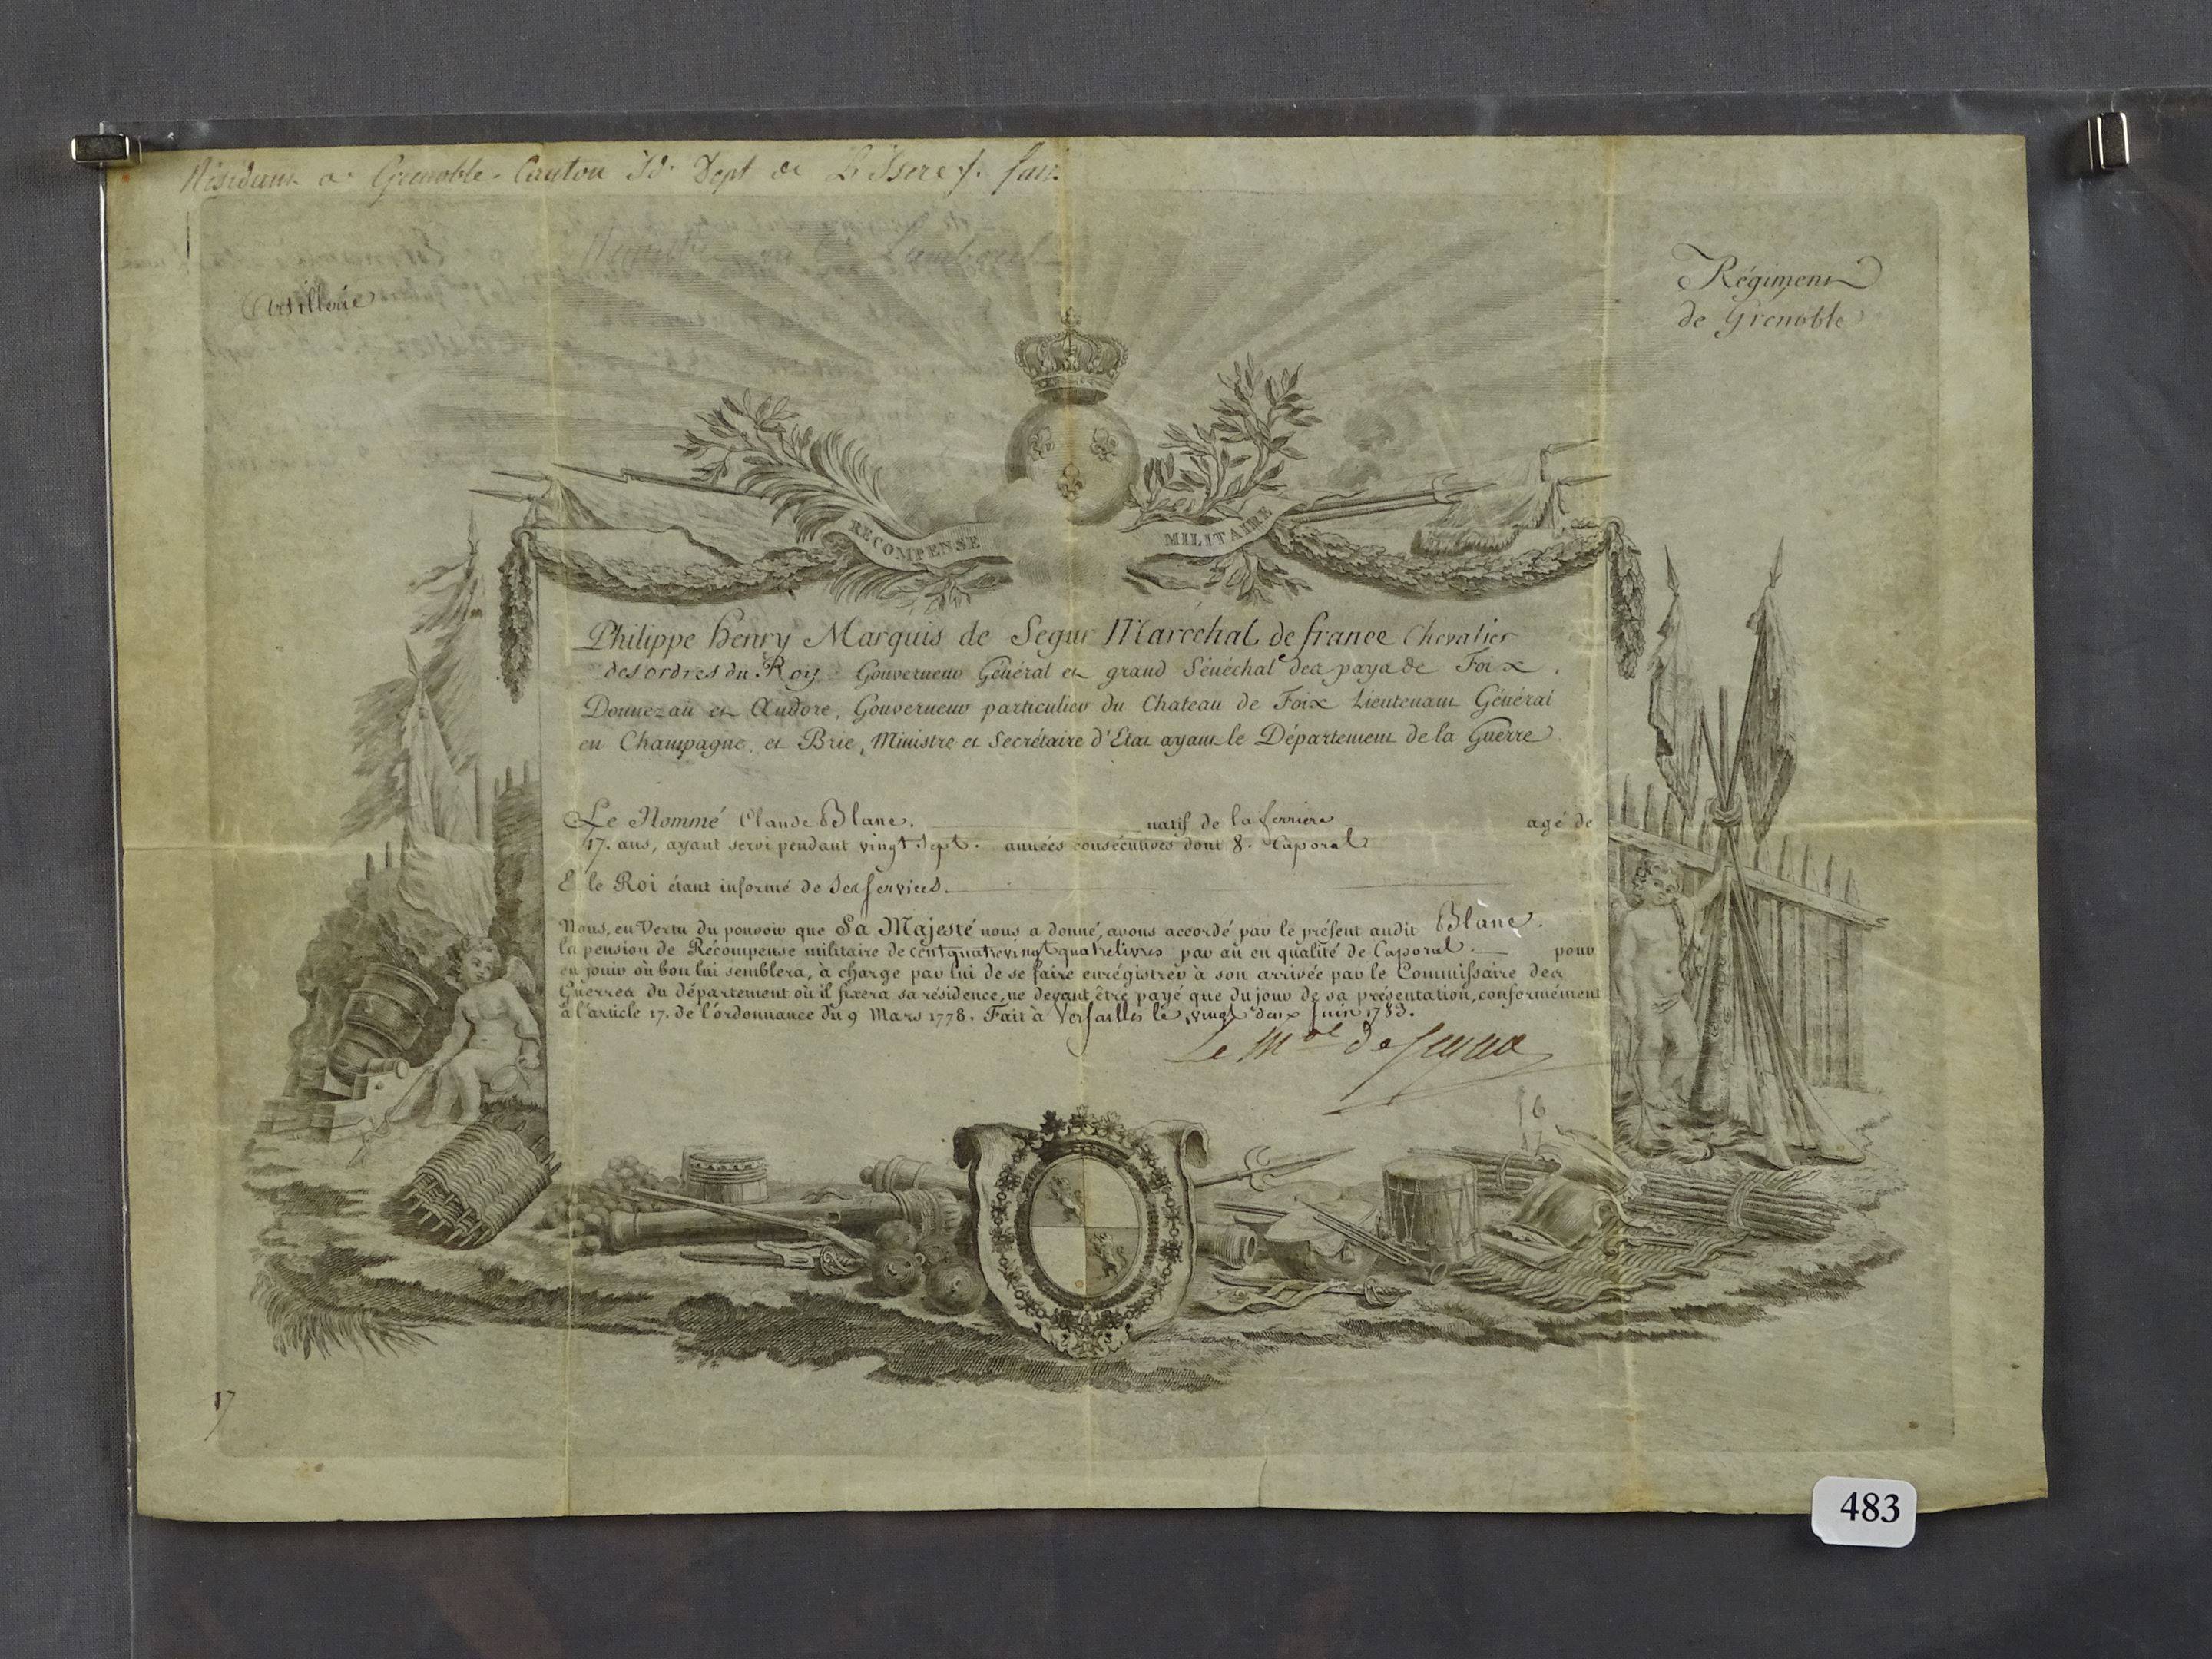 Résidant a Grenoble Canton Id. Dept de L'Isere
Artillerie
Régiment
de Grenoble
RECOMPENSE MILITAIRE
Philippe henry Marquis de Segur Maréchal de france Chevalier
des ordres du Roy Gouverneur Général et grand Sénéchal des pays de Foix,
Donnezan et Andore, Gouverneur particulier du Chateau de Foix Lieutenant Général
en Champagne, et Brie, Ministre et Secrétaire d'Etat ayant le Département de la Guerre
Le Nommé Claude Blanc. natif de la ferriere agé de
17. ans, ayant servi pendant vingt sept. années consécutives dont 8. Caporal
Et le Roi étant informé de ses services.
Nous, en Vertu du pouvoir que Sa Majesté nous a donné, avons accordé par le présent audit Blanc.
la pension de Récompense militaire de cent quatre vingt quatre livres par an en qualité de Caporal. pour
en jouir où bon lui semblera, à charge par lui de se faire enrégistrer à son arrivée par le Commissaire des
Guerres du département où il fixera sa résidence, ne devant être payé que du jour de sa présentation, conformément
à l'article 17. de l'ordonnance du 9 Mars 1778. Fait à Versailles le vingt deux Juin 1783.
Le Mal de Segur
16
17
483